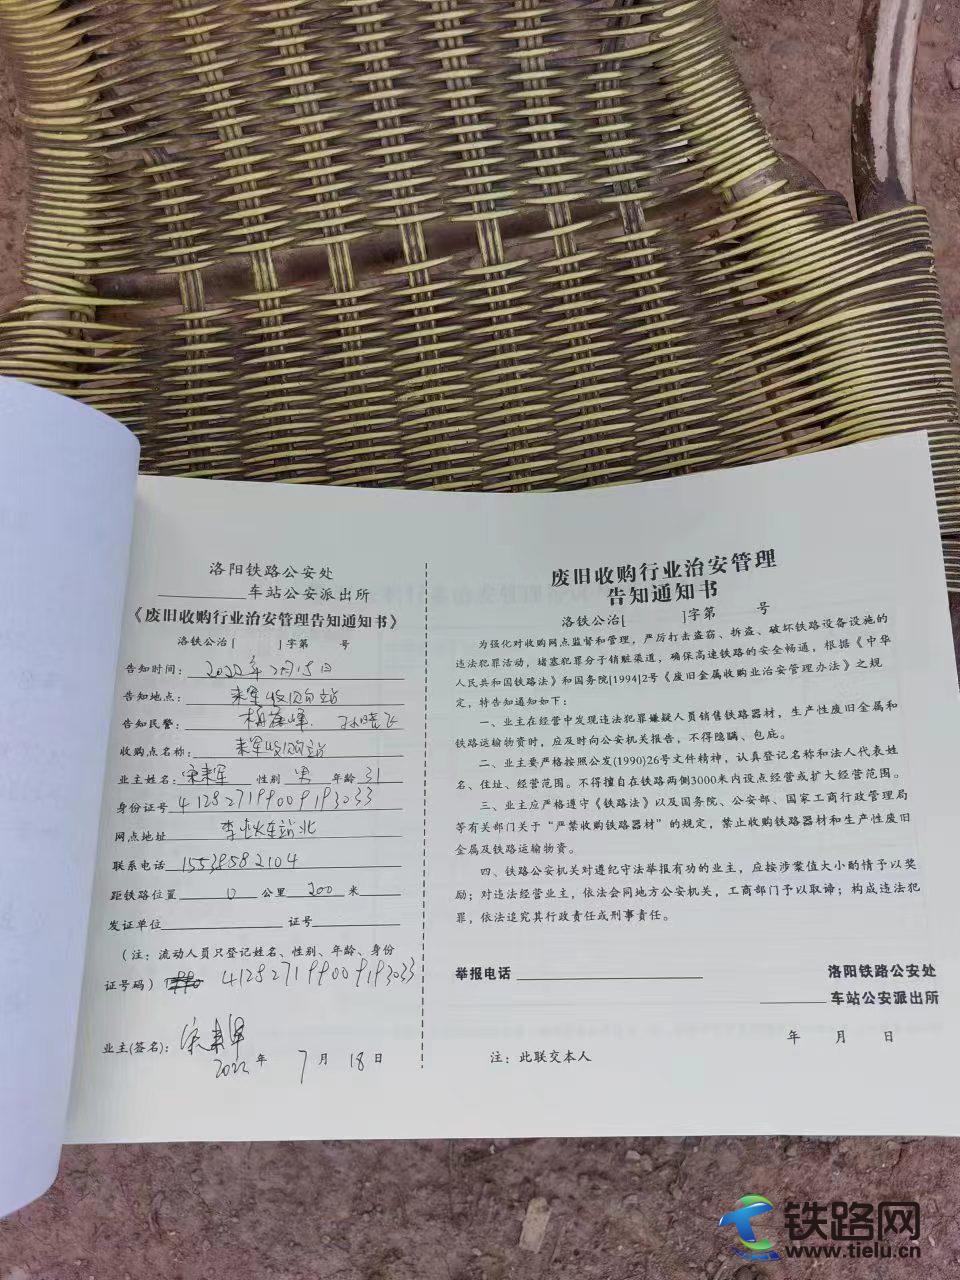 洛阳铁路公安处
车站公安派出所
《废旧收购行业治安管理告知通知书》
洛铁公治[ ]字第 号
告知时间: 2022年7月18日
告知地点: 来军收购站
告知民警:
收购点名称: 来军收购站
业主姓名: 来军 性别 男 年龄 31
身份证号 412827199009193033
网点地址 火车站北
联系电话 15538582104
距铁路位置 0 公里 300 米
发证单位 证号
(注: 流动人员只登记姓名、性别、年龄、身份
证号码) 412827199009193033
业主(签名): 来军
2022 年 7 月 18 日
废旧收购行业治安管理
告知通知书
洛铁公治[ ]字第 号
为强化对收购网点监督和管理，严厉打击盗窃、拆盗、破坏铁路设备设施的
违法犯罪活动，堵塞犯罪分子销赃渠道，确保高速铁路的安全畅通，根据《中华
人民共和国铁路法》和国务院[1994]2号《废旧金属收购业治安管理办法》之规
定，特告知通知如下：
一、业主在经营中发现违法犯罪嫌疑人员销售铁路器材，生产性废旧金属和
铁路运输物资时，应及时向公安机关报告，不得隐瞒、包庇。
二、业主要严格按照公发(1990)26号文件精神，认真登记名称和法人代表姓
名、住址、经营范围。不得擅自在铁路两侧3000米内设点经营或扩大经营范围。
三、业主应严格遵守《铁路法》以及国务院、公安部、国家工商行政管理局
等有关部门关于“严禁收购铁路器材”的规定，禁止收购铁路器材和生产性废旧
金属及铁路运输物资。
四、铁路公安机关对遵纪守法举报有功的业主，应按涉案值大小酌情予以奖
励；对违法经营业主，依法会同地方公安机关，工商部门予以取谛；构成违法犯
罪，依法追究其行政责任或刑事责任。
举报电话 洛阳铁路公安处
车站公安派出所
年 月 日
注：此联交本人
铁路网
www.tielu.cn